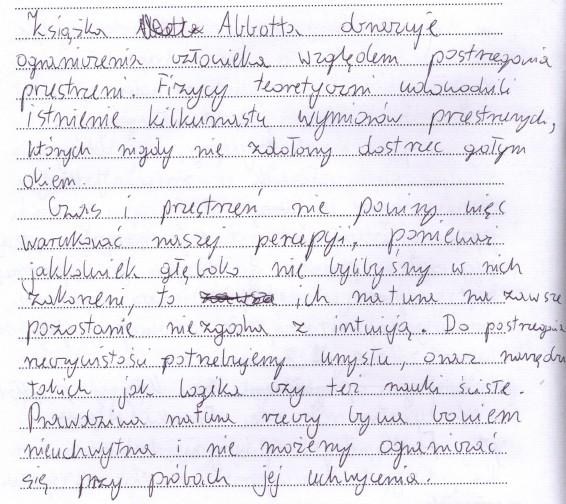 Książka Abbotta obrazuje
ograniczenia człowieka względem postrzegania
przestrzeni. Fizycy teoretyczni udowodnili
istnienie kilkunastu wymiarów przestrzennych,
których nigdy nie zdołamy dostrzec gołym
okiem.
Czas i przestrzeń nie powinny więc
warunkować naszej percepcji, ponieważ
jakkolwiek głęboko nie bylibyśmy w nich
zakorzenieni, to ich natura na zawsze
pozostanie niezgodna z intuicją. Do postrzegania
rzeczywistości potrzebujemy umysłu, oraz narzędzi
takich jak logika czy też nauki ścisłe.
Prawdziwa natura rzeczy bywa bowiem
nieuchwytna i nie możemy ograniczać
się przy próbach jej uchwycenia.